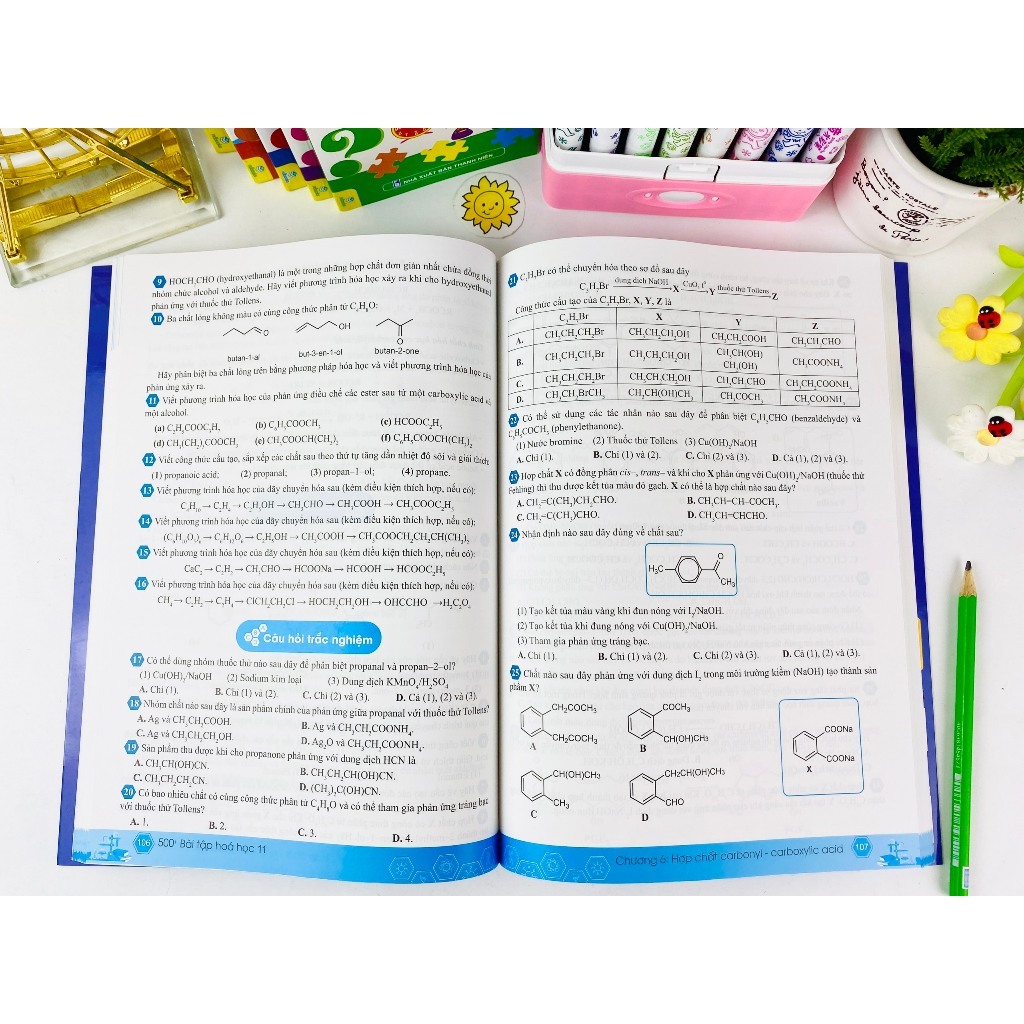 NHÀ XUẤT BẢN THANH NIÊN
9 HOCH₂CHO (hydroxyethanal) là một trong những hợp chất đơn giản nhất chứa đồng thời
nhóm chức alcohol và aldehyde. Hãy viết phương trình hóa học xảy ra khi cho hydroxyethanal
phản ứng với thuốc thử Tollens.
10 Ba chất lỏng không màu có cùng công thức phân tử C₄H₈O:
O OH
O
butan-1-al but-3-en-1-ol butan-2-one
Hãy phân biệt ba chất lỏng trên bằng phương pháp hóa học và viết phương trình hóa học của
phản ứng xảy ra.
11 Viết phương trình hóa học của phản ứng điều chế các ester sau từ một carboxylic acid và
một alcohol.
(a) C₂H₅COOC₂H₅ (b) C₂H₅COOCH₃ (c) HCOOC₂H₅
(d) CH₃(CH₂)₂COOCH₃ (e) CH₃COOCH(CH₃)₂ (f) C₂H₅COOCH(CH₃)₂
12 Viết công thức cấu tạo, sắp xếp các chất sau theo thứ tự tăng dần nhiệt độ sôi và giải thích
(1) propanoic acid; (2) propanal; (3) propan–1–ol; (4) propane.
13 Viết phương trình hóa học của dãy chuyển hóa sau (kèm điều kiện thích hợp, nếu có):
C₄H₁₀ → C₂H₄ → C₂H₅OH → CH₃CHO → CH₃COOH → CH₃COOC₂H₅
14 Viết phương trình hóa học của dãy chuyển hóa sau (kèm điều kiện thích hợp, nếu có):
(C₆H₁₀O₅)ₙ → C₆H₁₂O₆ → C₂H₅OH → CH₃COOH → CH₃COOCH₂CH₂CH(CH₃)₂
15 Viết phương trình hóa học của dãy chuyển hóa sau (kèm điều kiện thích hợp, nếu có):
CaC₂ → C₂H₂ → CH₃CHO → HCOONa → HCOOH → HCOOC₂H₅
16 Viết phương trình hóa học của dãy chuyển hóa sau (kèm điều kiện thích hợp, nếu có):
CH₄ → C₂H₂ → C₂H₄ → ClCH₂CH₂Cl → HOCH₂CH₂OH → OHCCHO → H₂C₂O₄
Câu hỏi trắc nghiệm
17 Có thể dùng nhóm thuốc thử nào sau đây để phân biệt propanal và propan–2–ol?
(1) Cu(OH)₂/NaOH (2) Sodium kim loại (3) Dung dịch KMnO₄/H₂SO₄
A. Chỉ (1). B. Chỉ (1) và (2). C. Chỉ (2) và (3). D. Cả (1), (2) và (3).
18 Nhóm chất nào sau đây là sản phẩm chính của phản ứng giữa propanal với thuốc thử Tollens?
A. Ag và CH₃CH₂COOH. B. Ag và CH₃CH₂COONH₄.
C. Ag và CH₃CH₂CH₂OH. D. Ag₂O và CH₃CH₂COONH₄.
19 Sản phẩm thu được khi cho propanone phản ứng với dung dịch HCN là
A. CH₃CH(OH)CN. B. CH₃CH₂CH(OH)CN.
C. CH₃CH₂CH₂CN. D. (CH₃)₂C(OH)CN.
20 Có bao nhiêu chất có cùng công thức phân tử C₄H₈O và có thể tham gia phản ứng tráng bạc
với thuốc thử Tollens?
A. 1. B. 2. C. 3. D. 4.
106 500⁺ Bài tập hoá học 11
21 C₃H₇Br có thể chuyển hóa theo sơ đồ sau đây
C₃H₇Br dung dịch NaOH → X CuO, t° → Y thuốc thử Tollens → Z
Công thức cấu tạo của C₃H₇Br, X, Y, Z là
C₃H₇Br X Y Z
A. CH₃CH₂CH₂Br CH₃CH₂CH₂OH CH₃CH₂COOH CH₃CH₂CHO
B. CH₃CH₂CH₂Br CH₃CH₂CH₂OH CH₃CH(OH) CH₃(OH) CH₃COONH₄
C. CH₃CH₂CH₂Br CH₃CH₂CH₂OH CH₃CH₂CHO CH₃CH₂COONH₄
D. CH₃CH₂BrCH₃ CH₃CH(OH)CH₃ CH₃COCH₃ CH₃COONH₄
22 Có thể sử dụng các tác nhân nào sau đây để phân biệt C₆H₅CHO (benzaldehyde) và
C₆H₅COCH₃ (phenylethanone).
(1) Nước bromine (2) Thuốc thử Tollens (3) Cu(OH)₂/NaOH
A. Chỉ (1). B. Chỉ (1) và (2). C. Chỉ (2) và (3). D. Cả (1), (2) và (3).
23 Hợp chất X có đồng phân cis–, trans– và khi cho X phản ứng với Cu(OH)₂/NaOH (thuốc thử
Fehling) thì thu được kết tủa màu đỏ gạch. X có thể là hợp chất nào sau đây?
A. CH₂=C(CH₃)CH₂CHO. B. CH₃CH=CH–COCH₃.
C. CH₂=C(CH₃)CHO. D. CH₃CH=CHCHO.
24 Nhận định nào sau đây đúng về chất sau?
H₃C O CH₃
(1) Tạo kết tủa màu vàng khi đun nóng với I₂/NaOH.
(2) Tạo kết tủa khi đung nóng với Cu(OH)₂/NaOH.
(3) Tham gia phản ứng tráng bạc.
A. Chỉ (1). B. Chỉ (1) và (2). C. Chỉ (2) và (3). D. Cả (1), (2) và (3).
25 Chất nào sau đây phản ứng với dung dịch I₂ trong môi trường kiềm (NaOH) tạo thành sản
phẩm X?
CH₂COCH₃ COCH₃ COONa
CH₂COCH₃ CH(OH)CH₃ COONa
A B X
CH(OH)CH₃ CH₂CH(OH)CH₃
CH₃ CHO
C D
Chương 6: Hợp chất carbonyl - carboxylic acid 107